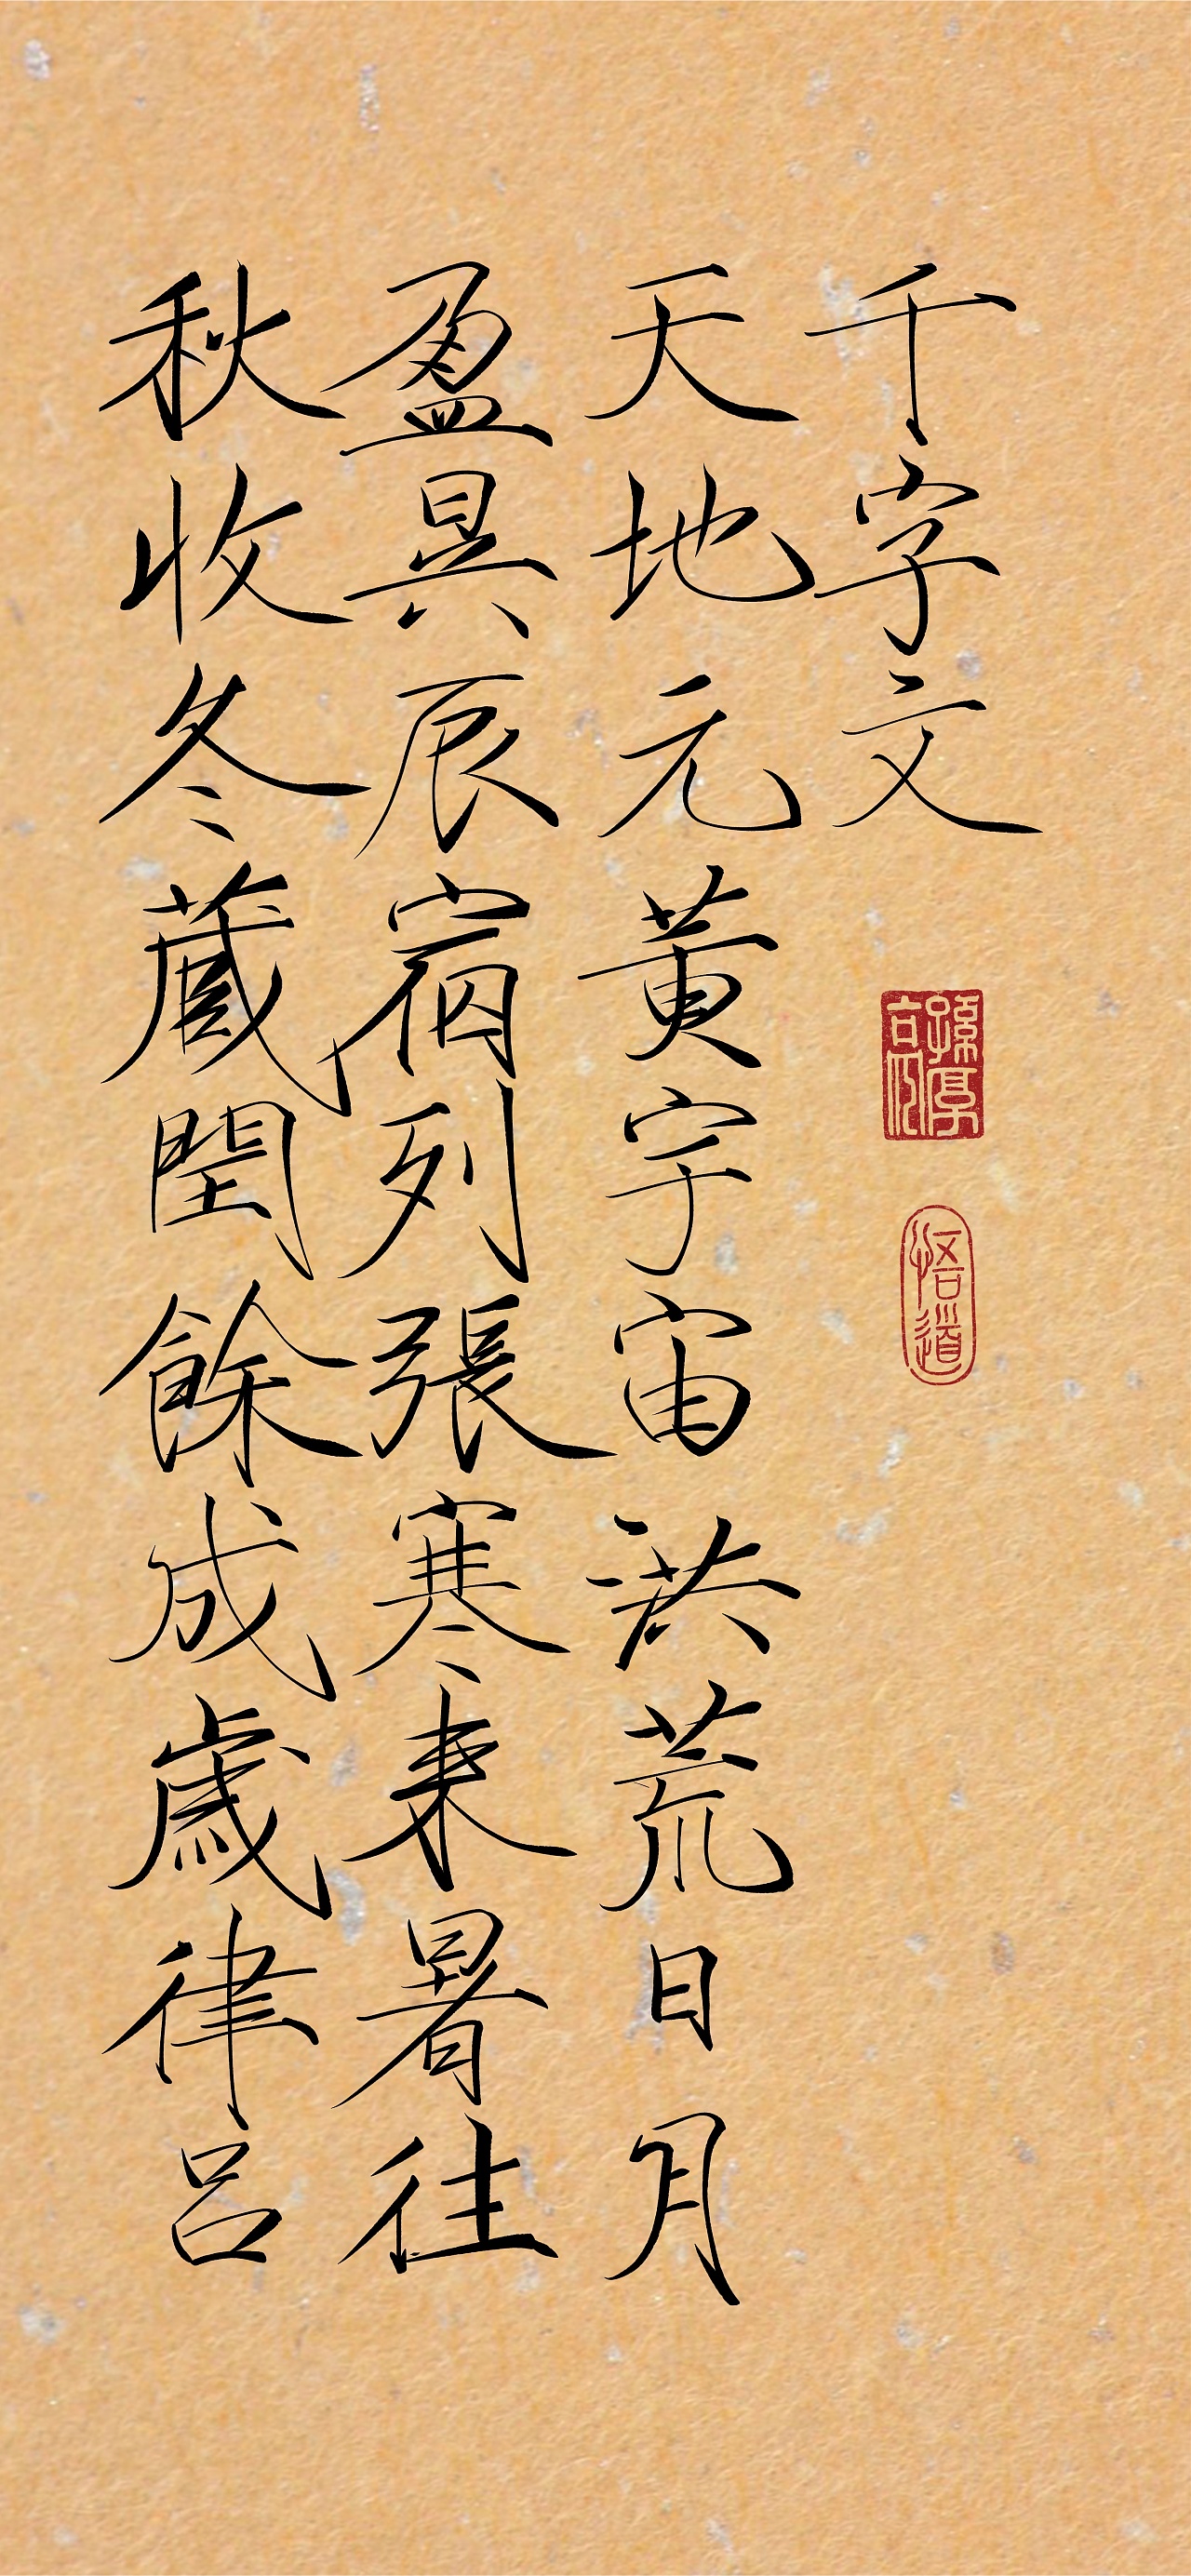 千字文
天地元黄宇宙洪荒日月
盈昃辰宿列張寒来暑往
秋收冬蔵閏餘成歲律呂
悟道